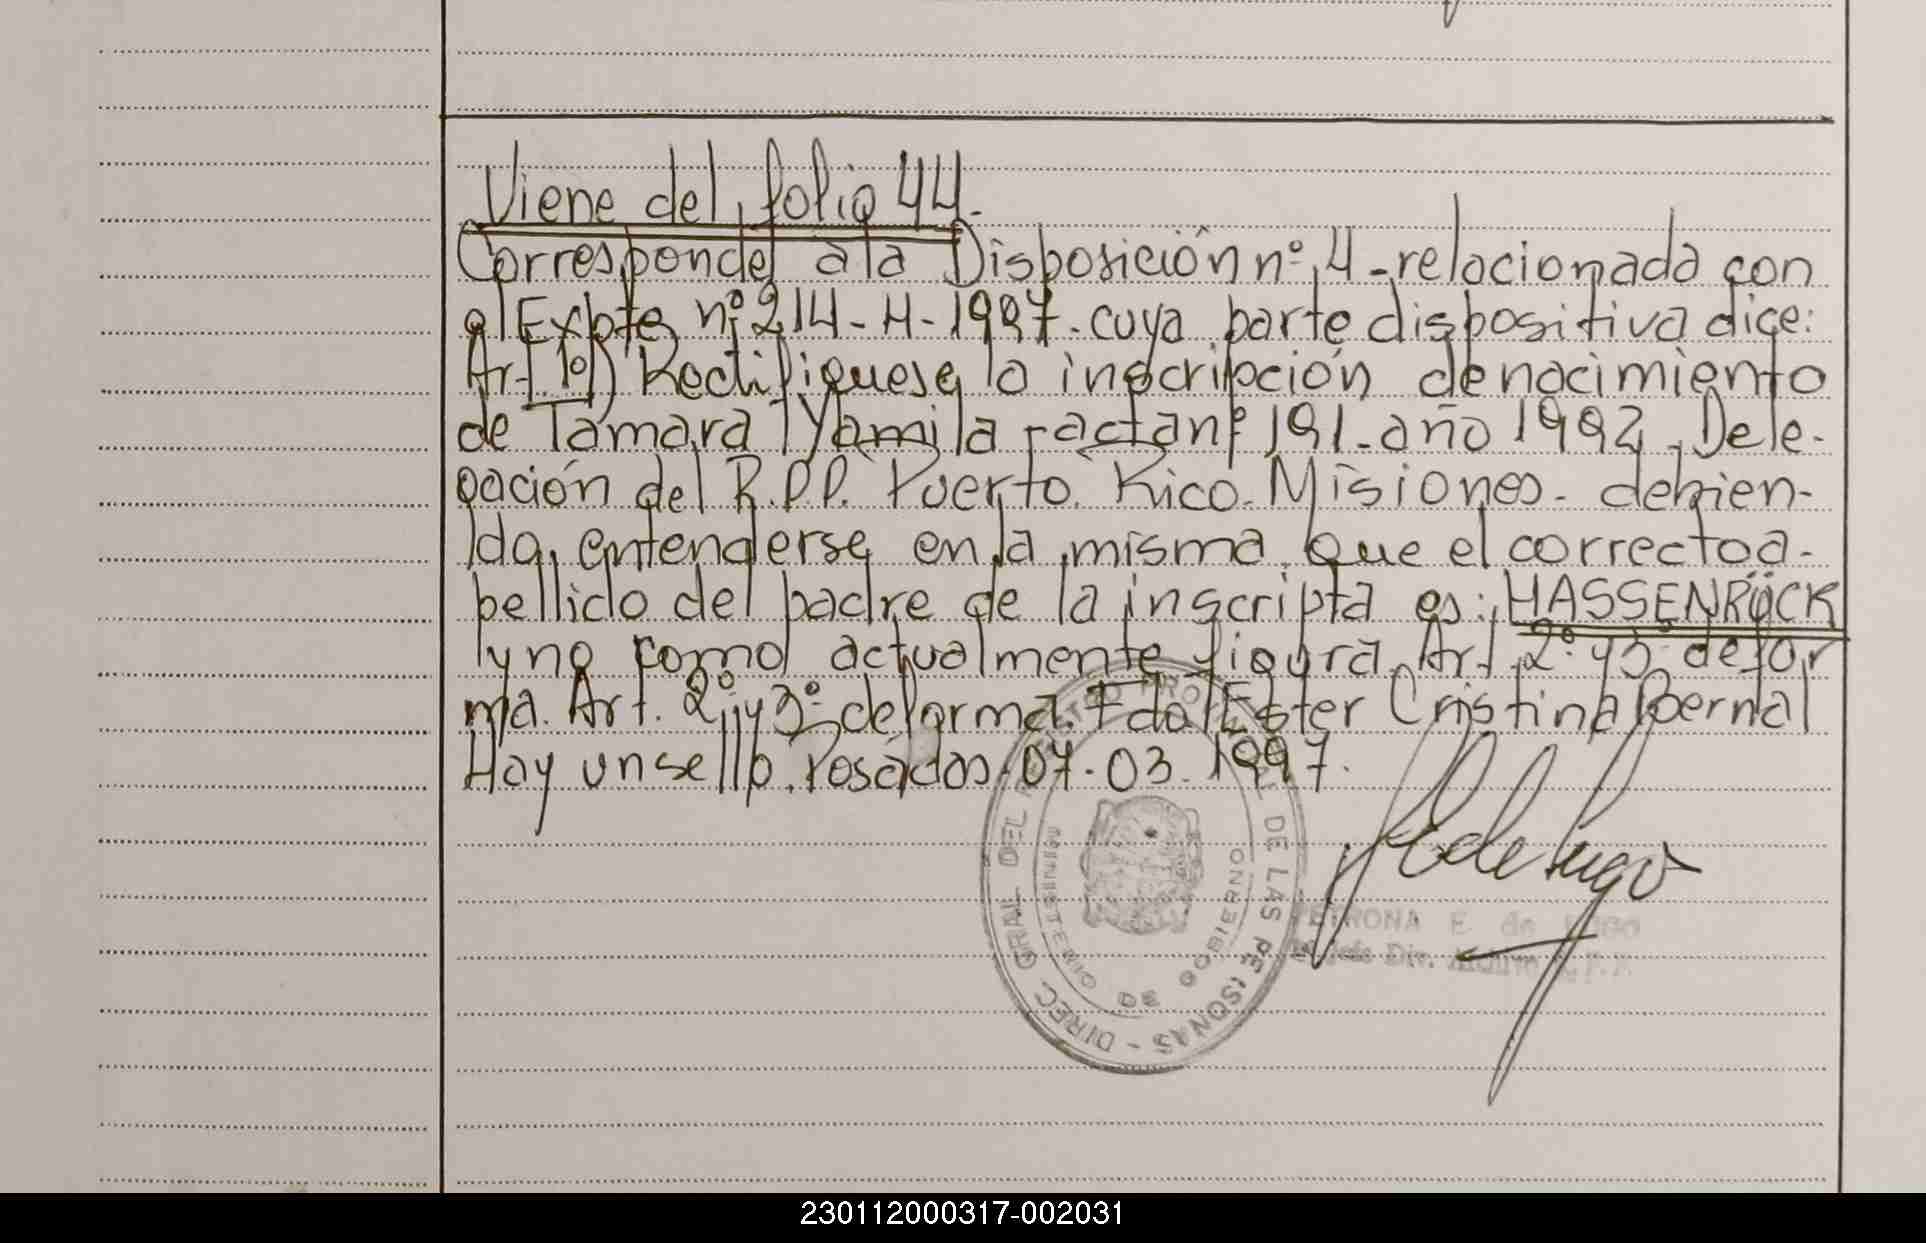 Viene del folio 44.
Corresponde a la Disposición nº 4 - relacionada con
el Expte nº 214 - H - 1997. cuya parte dispositiva dice:
Art. 1º) Rectifiquese la inscripción de nacimiento
de Tamara Yamila - acta nº 191 - año 1992. Dele-
gación del R.P.P. Puerto Rico - Misiones - debien-
do entenderse en la misma que el correcto a-
pellido del padre de la inscripta es: HASSENRÜCK
y no como actualmente figura. Art. 2º y 3º de for
ma. Art. 2º y 3º de forma. Fdo Ester Cristina Bernal
Hay un sello. Posadas 07 - 03 - 1997.
DIREC. GRAL DEL REGISTRO PROVINCIAL DE LAS PERSONAS -
MINISTERIO DE GOBIERNO
PETRONA E. de LUGO
Jefe Div. Archivo R.P.P.
230112000317-002031